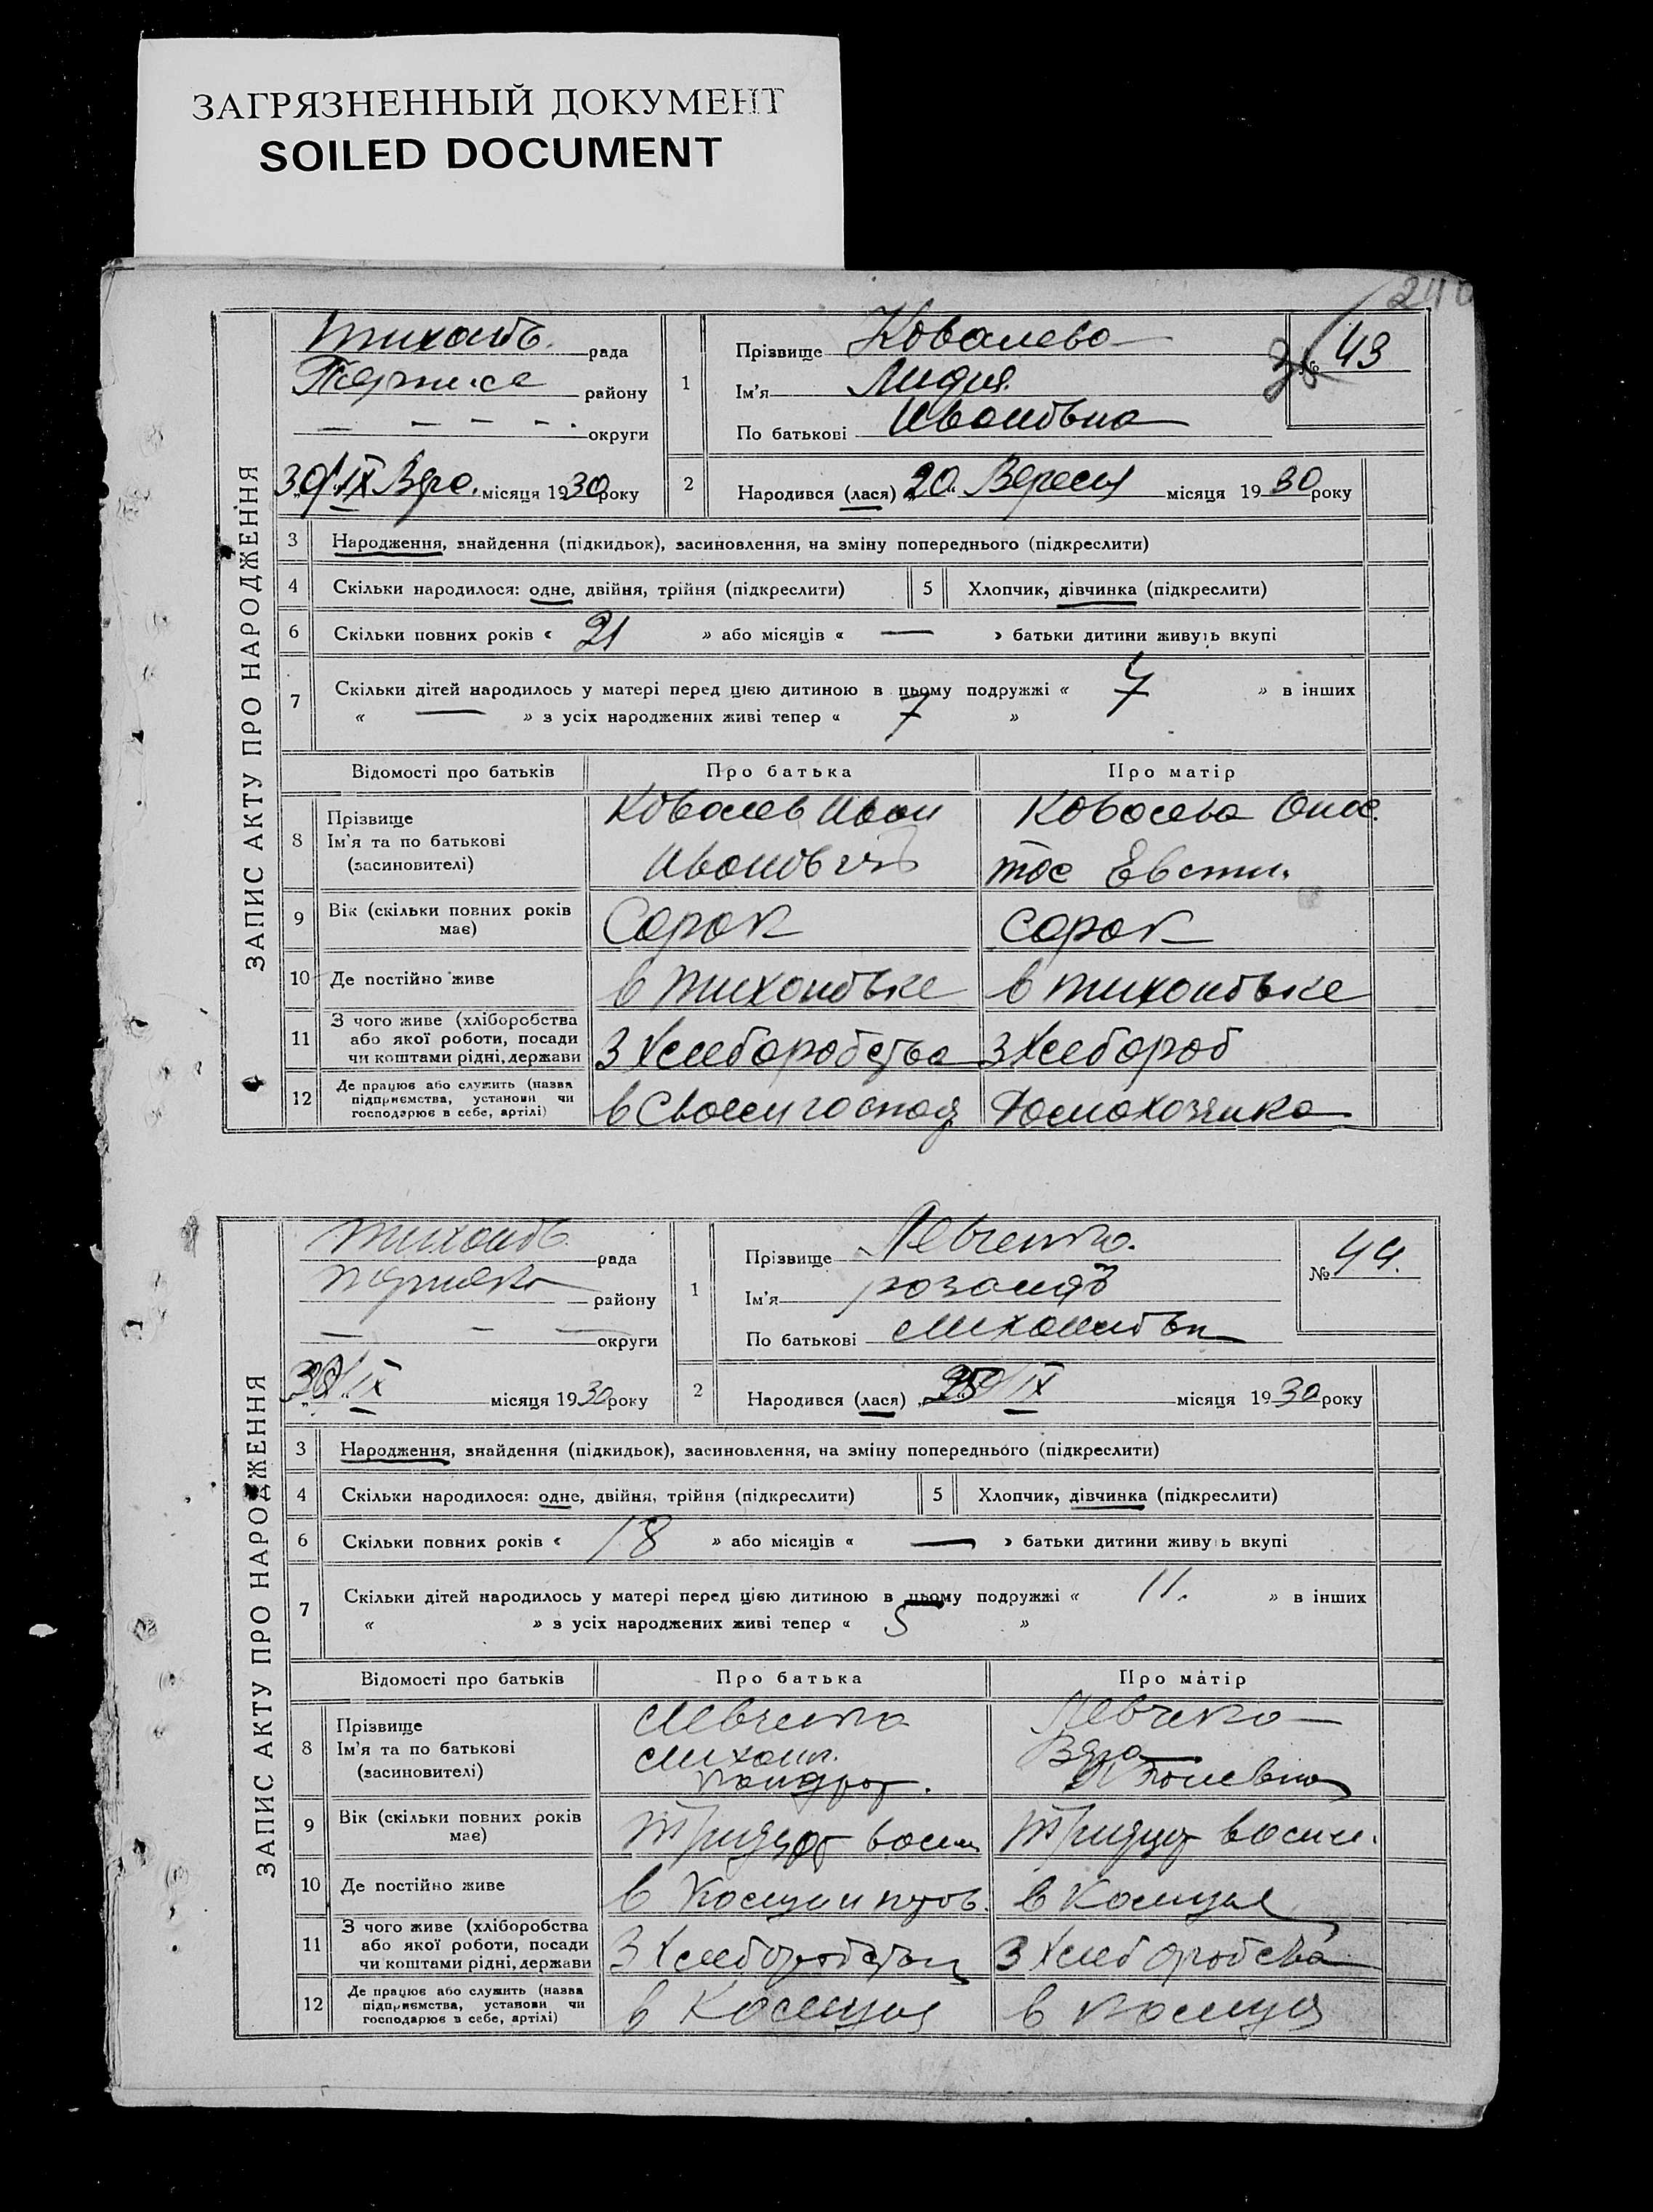 ЗАГРЯЗНЕННЫЙ ДОКУМЕНТ
SOILED DOCUMENT
240
ЗАПИС АКТУ ПРО НАРОДЖЕННЯ
рада
району
— — — —. округи
30/IX місяця 1930 року
1
Прізвище Ковалева
Ім'я Лидия
По батькові Иванвьна
№ 43
2
Народився (лася) 20 Вересня місяця 1930 року
3 Народження, знайдення (підкидьок), засиновлення, на зміну попереднього (підкреслити)
4 Скільки народилося: одне, двійня, трійня (підкреслити) 5 Хлопчик, дівчинка (підкреслити)
6 Скільки повних років « 21 » або місяців « — » батьки дитини живуть вкупі
7 Скільки дітей народилось у матері перед цією дитиною в цьому подружжі « » в інших
« — » з усіх народжених живі тепер « 7 »
Відомості про батьків Про батька Про матір
8 Прізвище
Ім'я та по батькові
(засиновителі)
Ковалев Иван
Ковалева Анас
тас Евсти.
9 Вік (скільки повних років має) Сорок сорок
10 Де постійно живе в Тихоновке в Тихоновке
11 З чого живе (хліборобства або якої роботи, посади чи коштами рідні, держави З Хлеборобства З Хлебороб
12 Де працює або служить (назва підприємства, установи чи господарює в себе, артілі) в Своем господ Домохозяика
ЗАПИС АКТУ ПРО НАРОДЖЕННЯ
рада
району
— — — округи
IX місяця 1930 року
1
Прізвище Левченко.
Ім'я
По батькові
№ 44.
2
Народився (лася) IX місяця 1930 року
3 Народження, знайдення (підкидьок), засиновлення, на зміну попереднього (підкреслити)
4 Скільки народилося: одне, двійня, трійня (підкреслити) 5 Хлопчик, дівчинка (підкреслити)
6 Скільки повних років « 18 » або місяців « — » батьки дитини живуть вкупі
7 Скільки дітей народилось у матері перед цією дитиною в цьому подружжі « 11. » в інших
« » з усіх народжених живі тепер « 5 »
Відомості про батьків Про батька Про матір
8 Прізвище
Ім'я та по батькові
(засиновителі)
Левченко
Михаил.
Кондрат.
Левчеко
Вера
9 Вік (скільки повних років має) Тридцат восим Тридцат восим.
10 Де постійно живе в в Комуне
11 З чого живе (хліборобства або якої роботи, посади чи коштами рідні, держави З Хлеборобства З Хлеборобсва
12 Де працює або служить (назва підприємства, установи чи господарює в себе, артілі) в Комуня в комуня